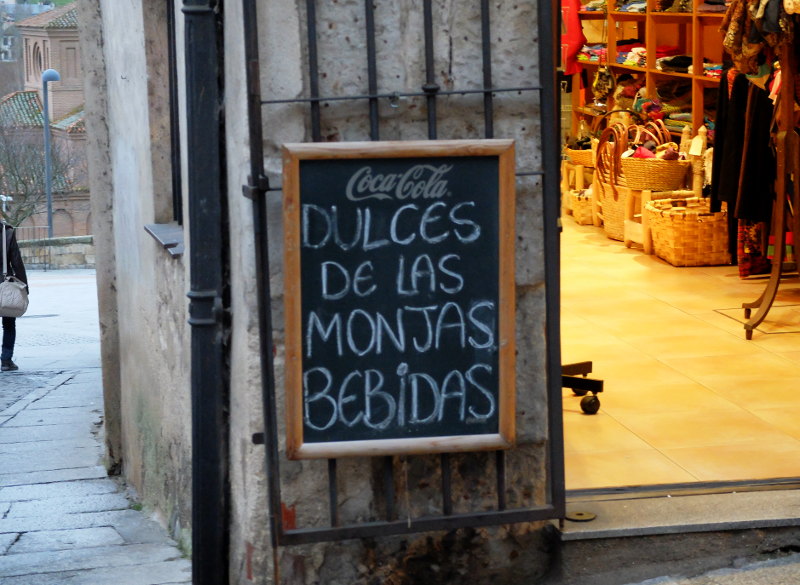 Coca-Cola
DULCES
DE LAS
MONJAS
BEBIDAS